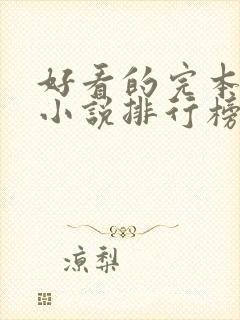 好看的完本
小说排行榜
凉梨